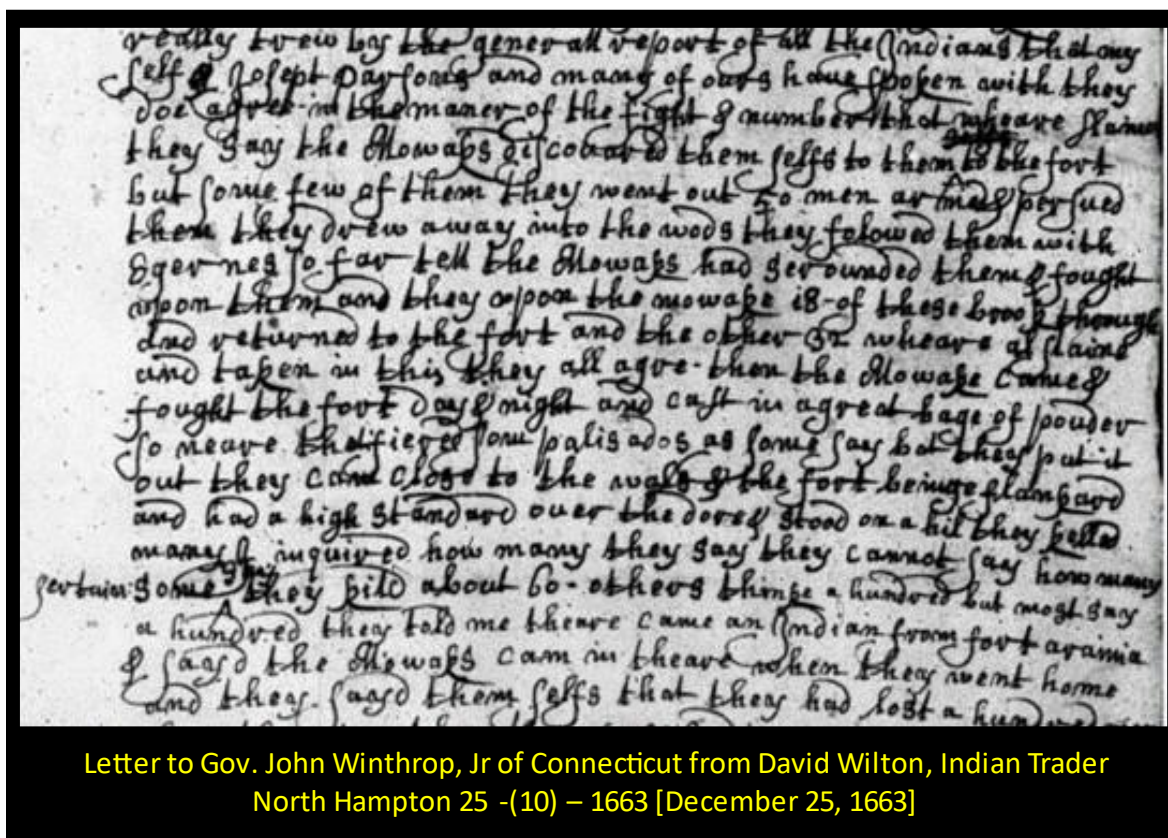 really trew by the generall report of all the Indians that my
self & Josept parsons and many of ours have spoken with they
doe agree in the maner of the fight & number that wheare slaine
they say the Mowaks discovared them selfs to them to the fort
but some few of them they went out 50 men armed & persued
them they drew away into the wods they folowed them with
egernes so far tell the Mowaks had serounded them & fought
upon them and they upon the mowake 18 of these brook through
and returned to the fort and the other 32 wheare al slaine
and taken in this they all agre then the Mowake came &
fought the fort day & night and cast in a great bage of pouder
so neare fiered som palisados as some say but they put it
out they cam close to the wals & the fort beinge flankard
and had a high standard over the dore & stood on a hil they kelled
many I inquired how many they say they cannot say how many
sertain some they kild about 60 others thinke a hundred but most say
a hundred they told me theare came an Indian from fort arania
& sayd the Mowaks cam in theare when they went home
and they sayd them selfs that they had lost a hundred
Letter to Gov. John Winthrop, Jr of Connecticut from David Wilton, Indian Trader
North Hampton 25 -(10) – 1663 [December 25, 1663]